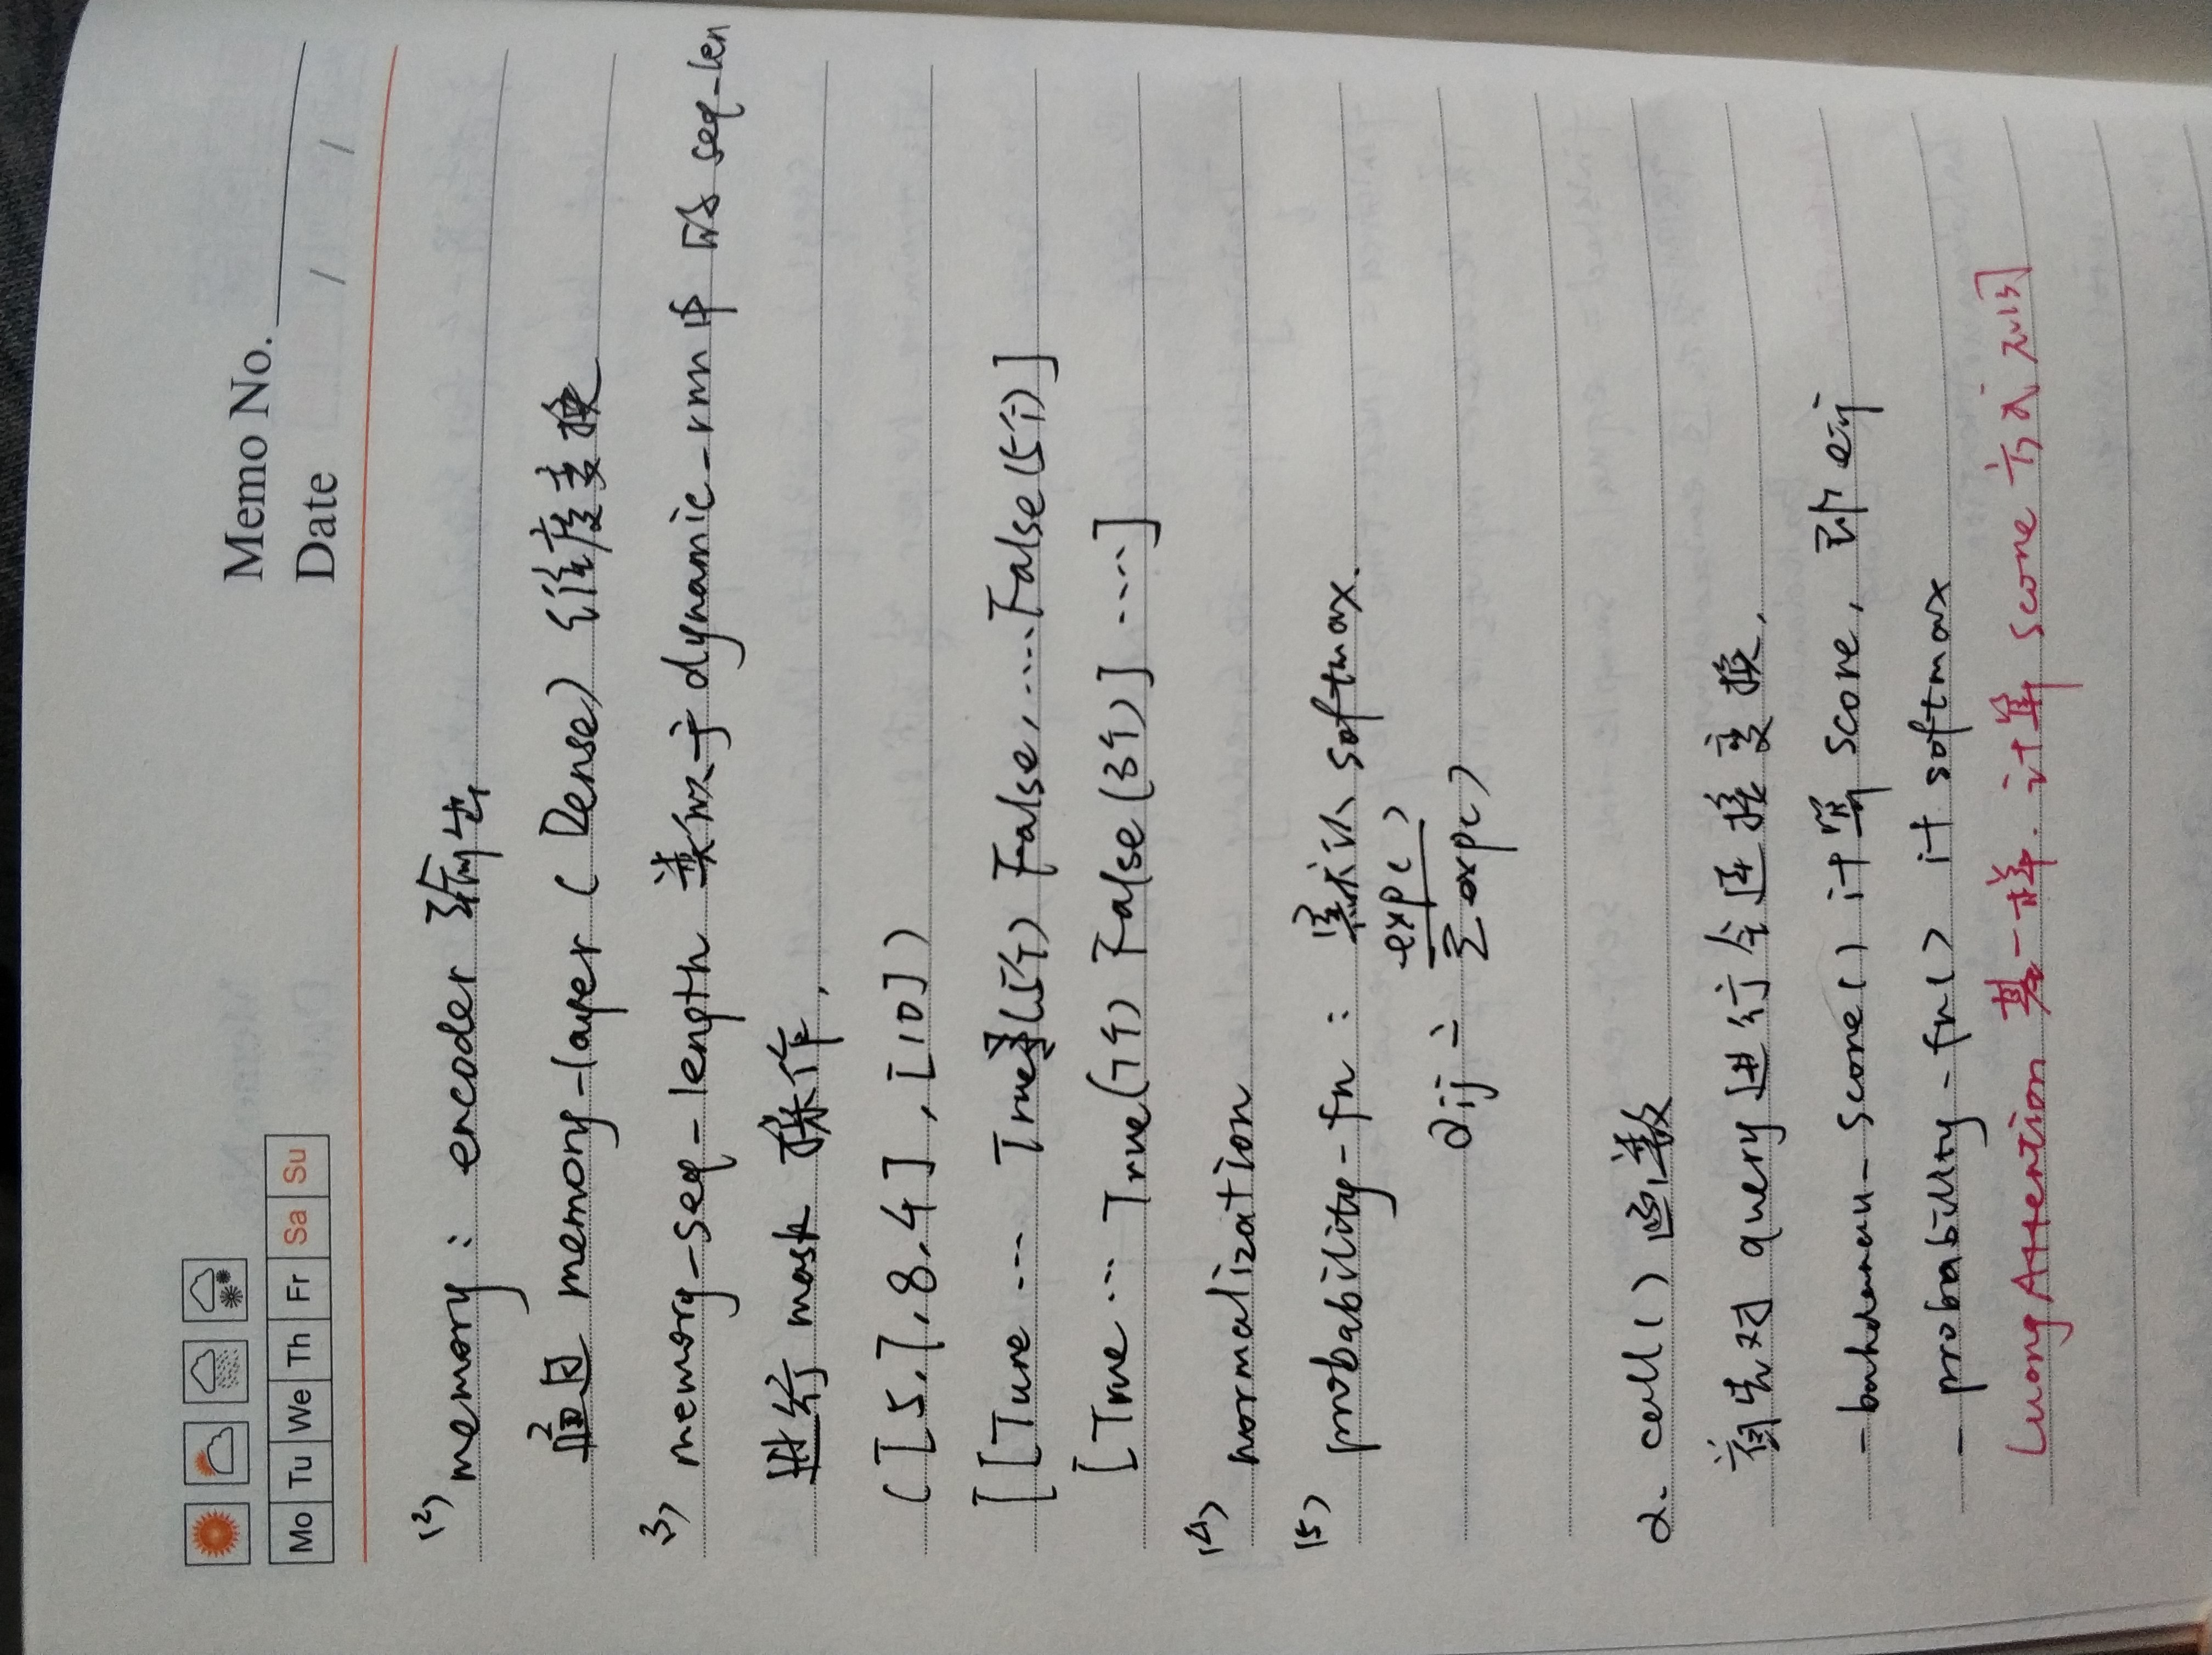 Mo Tu We Th Fr Sa Su
Memo No.
Date / /
(2) memory: encoder 输出
通过 memory-layer (Dense) 维度变换
3) memory-seq-length 类似于 dynamic-rnn 中的 seq-len
进行 mask 操作,
([5,7,8,4],[10])
[[Ture ... True(5个) False, .... False(5个)]
[True ... True(7个) False(3个)] ....]
(4) normalization
(5) probability-fn: 默认 softmax.
αij = exp( )
Σexp( )
2. call() 函数
首先对 query 进行全连接变换,
-bahdanau-score() 计算 score, 即 eij
- probability-fn() 计 softmax
LuongAttention 基一样. 计算 score 方式不同